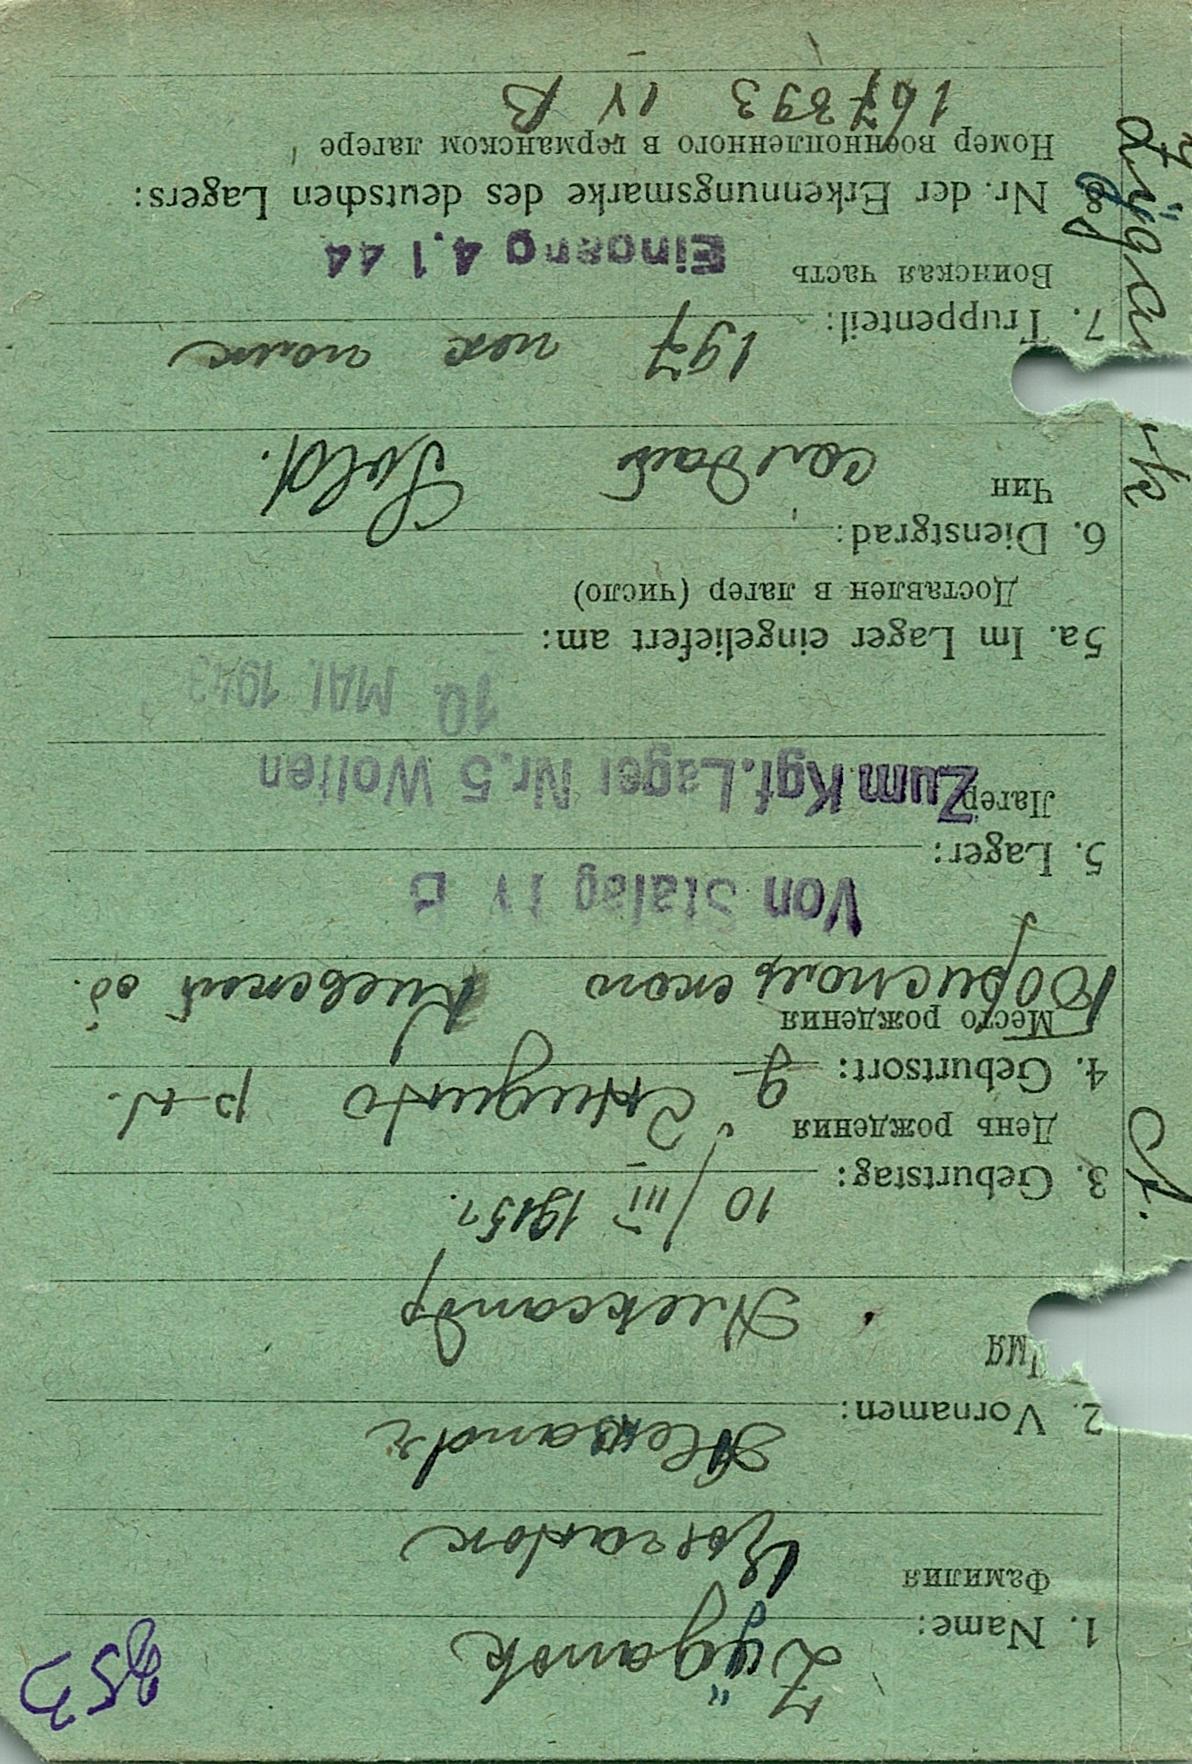 853
1. Name: Zÿganok
Фамилия Цыганок
2. Vornamen: Alexandr
Имя Александр
3. Geburtstag: 10/III 1915г.
День рождения
4. Geburtsort:
Место рождения
Бориспольского Киевской об.
Von Stalag IV B
5. Lager:
Лагерь Zum Kgf. Lager Nr. 5 Wolfen
10. MAI 1943
5a. Im Lager eingeliefert am:
Доставлен в лагер (число)
6. Dienstgrad: Sold.
Чин солдат
7. Truppenteil: 197 пех полк
Воинская часть Eingang 4.1 44
Nr. der Erkennungsmarke des deutschen Lagers:
Номер военнопленного в германском лагере
167893 IV B
A.